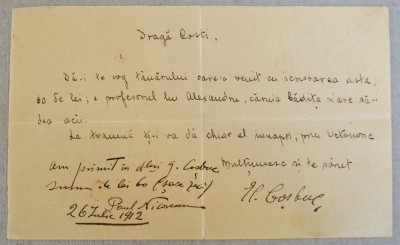 Dragă Costi,
Dă-i te rog tânărului care a venit cu scrisoarea asta
60 de lei; e profesorul lui Alexandru, căruia Bădița n'are să-i
dea acu
La toamnă ți-i va da chiar el înapoi, prin
Mulțumesc și te sărut
El. Coșbuc
Am primit în d-lui G. Cosbuc
suma de lei 60 (șase zeci)
Paul
26 Iulie 1912